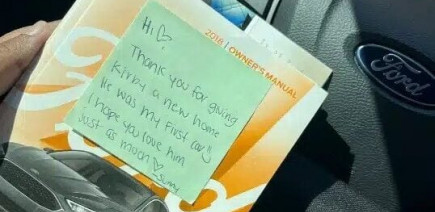 Hi ♡
Thank you for giving
Kirby a new home
He was my first car!!
I hope you love him
Just as much ♡
2018 | OWNER'S MANUAL
Ford